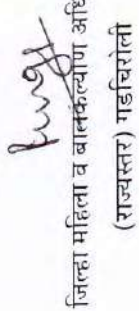 जिल्हा महिला व बालकल्याण अधि
(राज्यस्तर) गडचिरोली